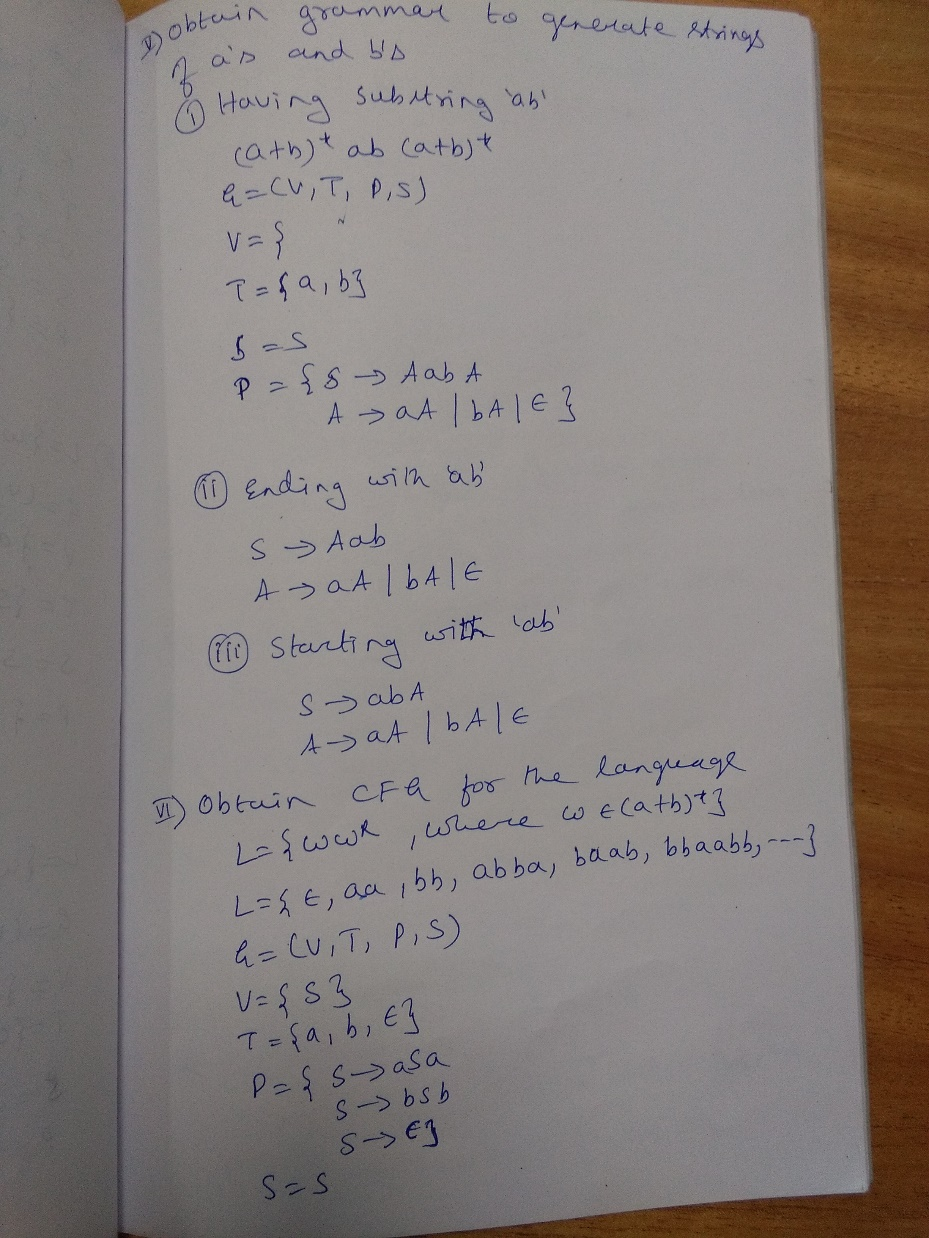 V) Obtain grammar to generate strings
of a's and b's
(i) Having substring 'ab'
(a+b)* ab (a+b)*
G=(V, T, P, S)
V={
T={a, b}
S=S
P={S→AabA
A→aA | bA | ϵ}
(ii) Ending with 'ab'
S→Aab
A→aA | bA | ϵ
(iii) Starting with 'ab'
S→abA
A→aA | bA | ϵ
VI) Obtain CFG for the language
L={ωωᴿ, where ω ϵ (a+b)*}
L={ϵ, aa, bb, abba, baab, bbaabb, ---}
G=(V, T, P, S)
V={S}
T={a, b, ϵ}
P={S→aSa
S→bSb
S→ϵ}
S=S